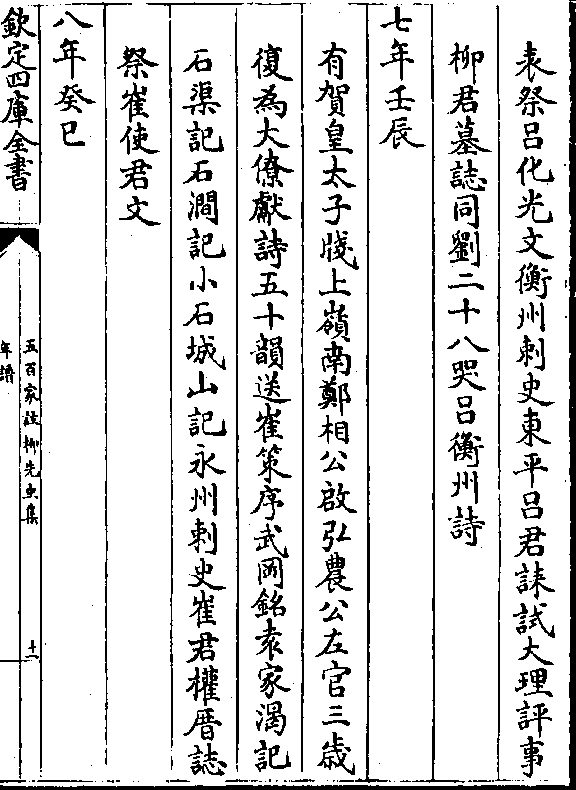 表祭吕化光文衡州刺史東平吕君誄試大理評事
柳君墓誌同劉二十八哭吕衡州詩
七年壬辰
有賀皇太子牋上嶺南鄭相公啟弘農公左官三歳
復為大僚獻詩五十韻送崔策序武岡銘袁家渴記
石渠記石澗記小石城山記永州刺史崔君權厝誌
祭崔使君文
八年癸巳
欽定四庫全書
五百家註柳先生集
年譜
十一